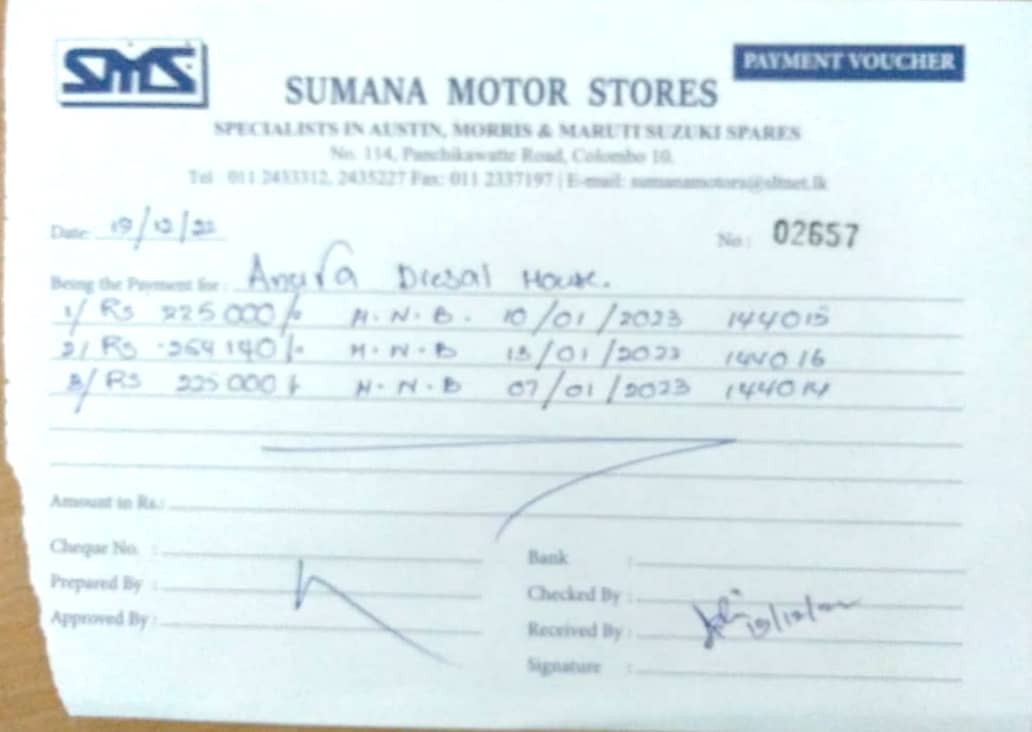 SMS
PAYMENT VOUCHER
SUMANA MOTOR STORES
SPECIALISTS IN AUSTIN, MORRIS & MARUTI SUZUKI SPARES
No. 114, Panchikawatte Road, Colombo 10.
Tel : 011 2433312, 2435227 Fax: 011 2337197 | E-mail: sumanamotors@sltnet.lk
Date: 19/12/22
No : 02657
Being the Payment for : Anura Diesal House.
1/ Rs 225 000/- H.N.B. 10/01/2023 144015
2/ Rs 264 140/- H.N.B 13/01/2023 144016
3/ Rs 225 000/- H.N.B 07/01/2023 144014
Amount in Rs.:
Cheque No. :
Bank :
Prepared By :
Checked By :
Approved By :
Received By : 19/12/22
Signature :